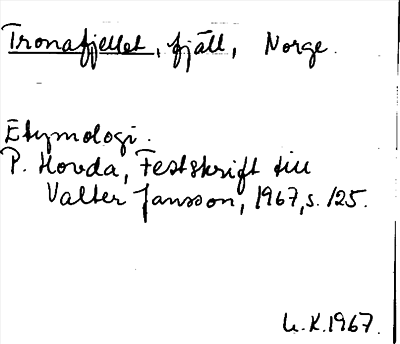 Tronafjellet, fjäll, Norge.
Etymologi.
P. Hovda, Festskrift till
Valter Jansson, 1967, s. 125.
U.K. 1967.